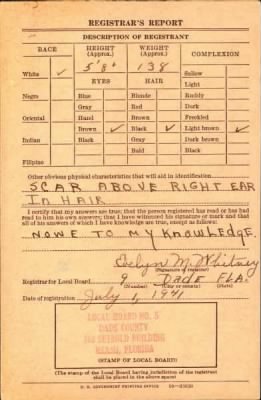 REGISTRAR'S REPORT
DESCRIPTION OF REGISTRANT
RACE HEIGHT (Approx.) WEIGHT (Approx.) COMPLEXION
White ✓ 5'8" 138 Sallow
EYES HAIR Light
Negro Blue Blonde Ruddy
Gray Red Dark
Oriental Hazel Brown Freckled
Brown ✓ Black ✓ Light brown ✓
Indian Black Gray Dark brown
Bald Black
Filipino
Other obvious physical characteristics that will aid in identification
SCAR ABOVE RIGHT EAR
IN HAIR
I certify that my answers are true; that the person registered has read or has had
read to him his own answers; that I have witnessed his signature or mark and that
all of his answers of which I have knowledge are true, except as follows:
NONE TO MY KNOWLEDGE
Evelyn M. Whitney
(Signature of registrar)
Registrar for Local Board 9 DADE FLA.
(Number) (City or county) (State)
Date of registration July 1, 1941
LOCAL BOARD NO. 5
DADE COUNTY
SEYBOLD BUILDING
MIAMI, FLORIDA
(STAMP OF LOCAL BOARD)
(The stamp of the Local Board having jurisdiction of the registrant
shall be placed in the above space)
U. S. GOVERNMENT PRINTING OFFICE